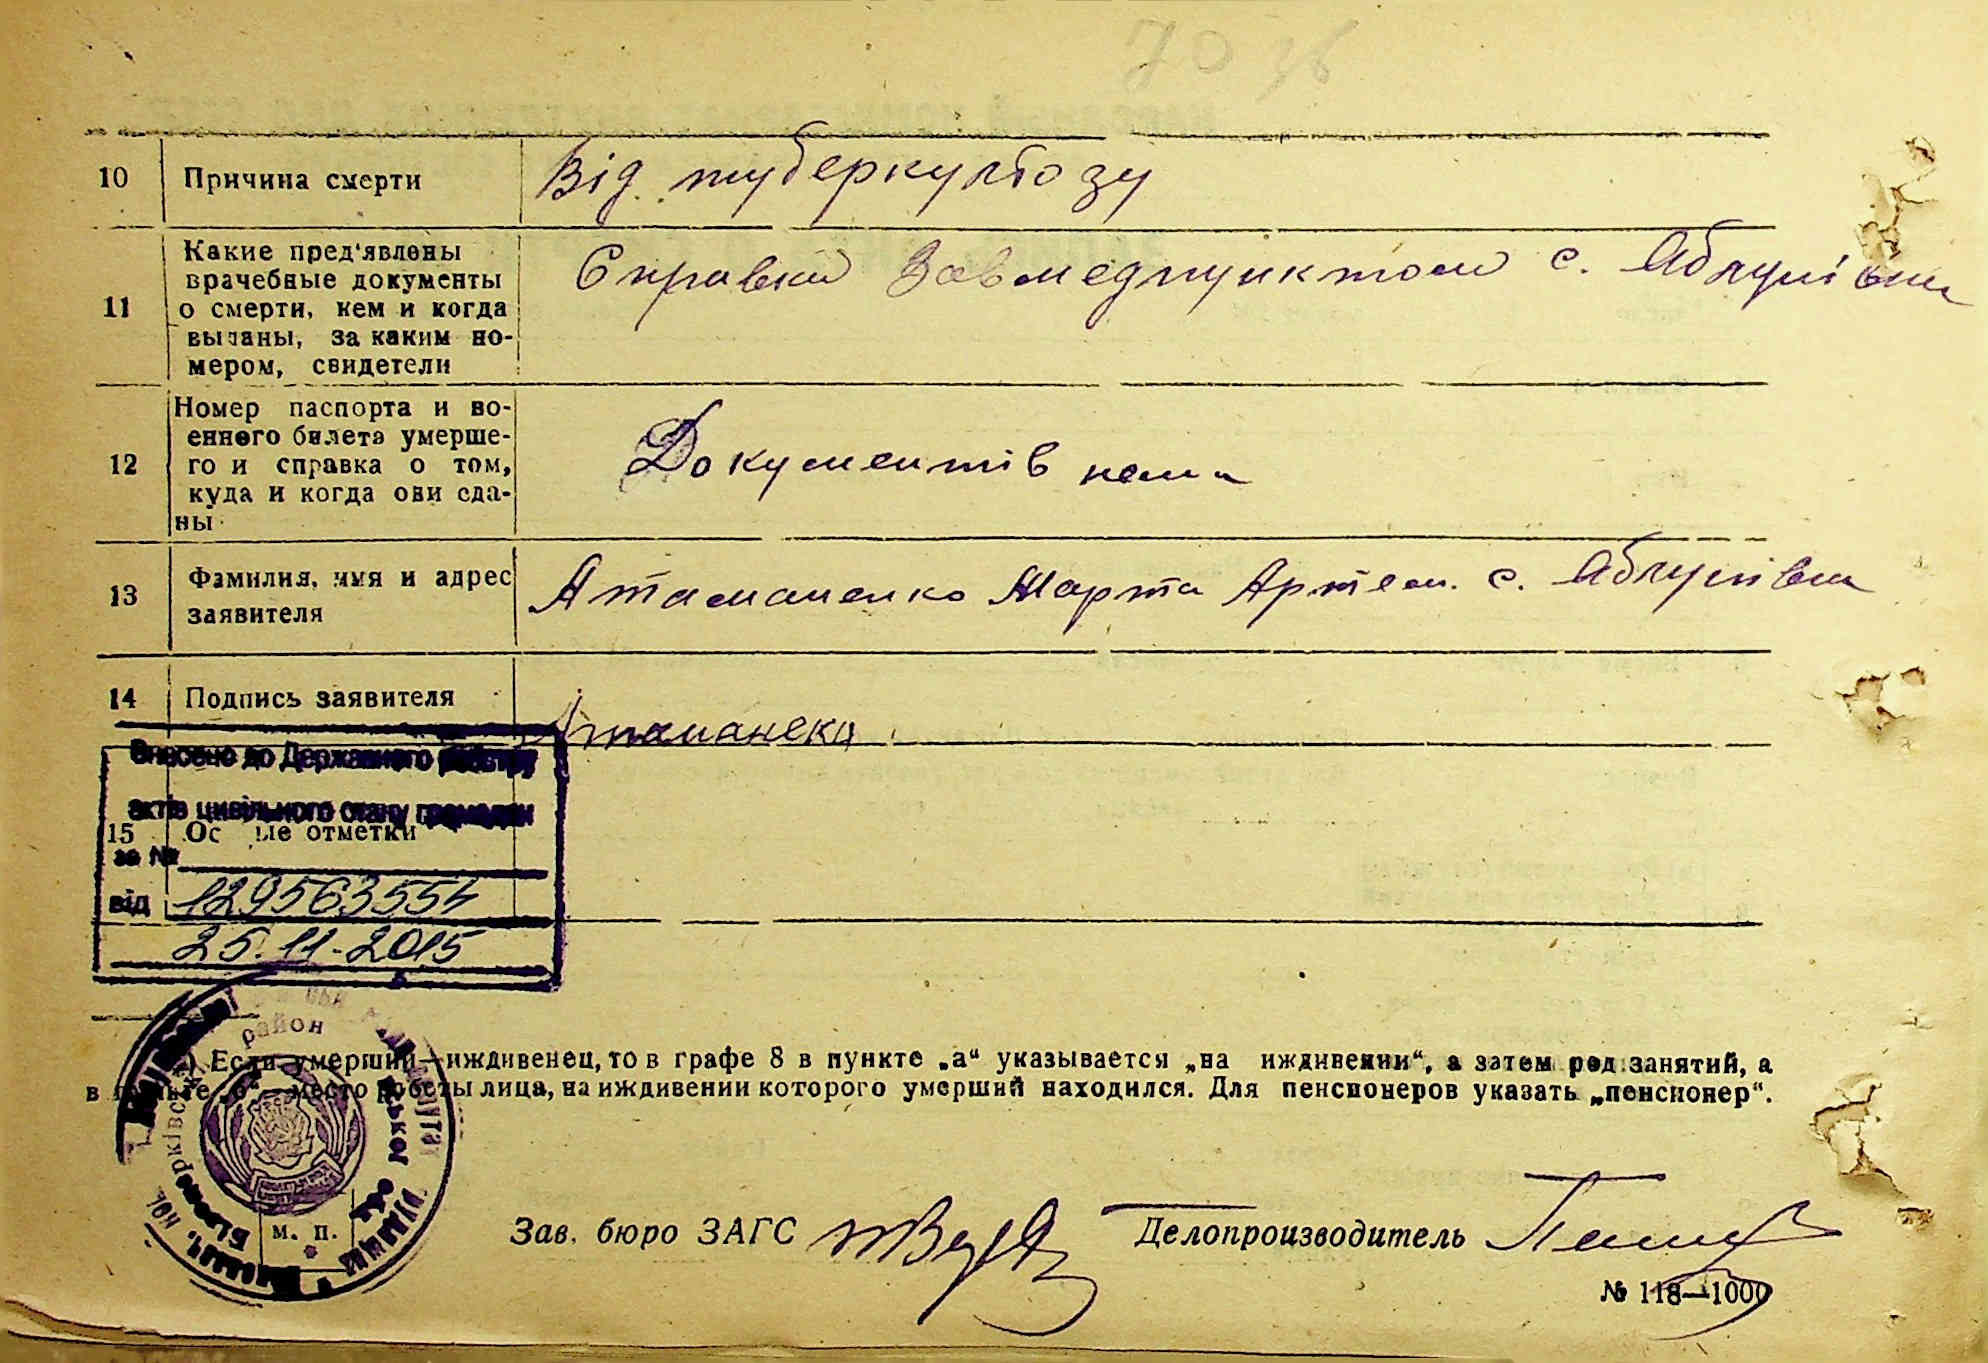 70 зв
10 Причина смерти Від туберкультозу
11 Какие пред'явлены
врачебные документы
о смерти, кем и когда
выданы, за каким но-
мером, свидетели
Справка Завмедпунктом с. Яблунівки
12 Номер паспорта и во-
енного билета умерше-
го и справка о том,
куда и когда они сда-
ны
Документів нема
13 Фамилия, имя и адрес
заявителя
Атаманенко Марта Артем. с. Яблунівка
14 Подпись заявителя
Внесено до Державного реєстру
актів цивільного стану громадян
15 отметки
за №
від 129563554
25.11.2015
район
Если умерший—иждивенец, то в графе 8 в пункте „а“ указывается „на иждивении“, а затем род занятий, а
в место работы лица, на иждивении которого умерший находился. Для пенсионеров указать „пенсионер“.
м. п.
Зав. бюро ЗАГС
Делопроизводитель
№ 118—1000